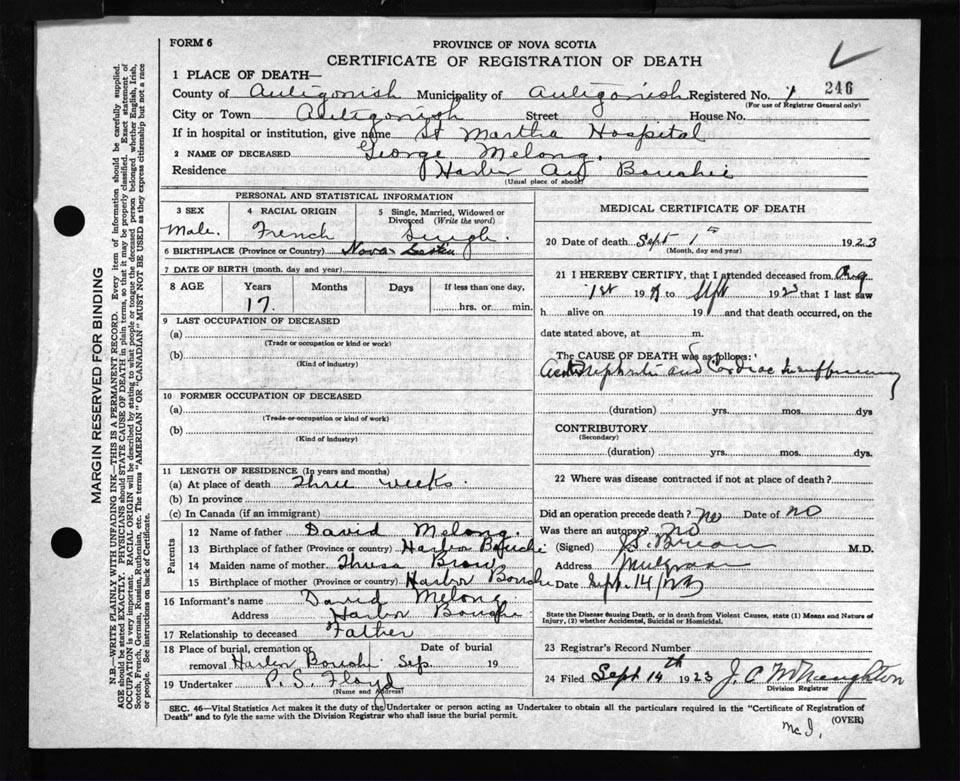 FORM 6
PROVINCE OF NOVA SCOTIA
CERTIFICATE OF REGISTRATION OF DEATH
246
1 PLACE OF DEATH—
County of Antigonish Municipality of Antigonish Registered No.
(For use of Registrar General only)
City or Town Antigonish Street House No.
If in hospital or institution, give name St Martha Hospital
2 NAME OF DECEASED George Melong.
Residence Harbor Au Bouchie
(Usual place of abode)
PERSONAL AND STATISTICAL INFORMATION
3 SEX
Male.
4 RACIAL ORIGIN
French
5 Single, Married, Widowed or Divorced (Write the word)
Single.
6 BIRTHPLACE (Province or Country) Nova Scotia
7 DATE OF BIRTH (month, day and year)
8 AGE Years Months Days If less than one day,
17. hrs. or min.
9 LAST OCCUPATION OF DECEASED
(a)
(Trade or occupation or kind or work)
(b)
(Kind of industry)
10 FORMER OCCUPATION OF DECEASED
(a)
(Trade or occupation or kind of work)
(b)
(Kind of industry)
11 LENGTH OF RESIDENCE (In years and months)
(a) At place of death Three weeks.
(b) In province
(c) In Canada (if an immigrant)
Parents
12 Name of father David Melong.
13 Birthplace of father (Province or country) Harbor Bouchie
14 Maiden name of mother Thresa Brow
15 Birthplace of mother (Province or country) Harbor Bouche
16 Informant's name David Melong.
Address Harbor Boughie
17 Relationship to deceased Father
18 Place of burial, cremation or Date of burial
removal Harbor Bouchie Sep. 19
19 Undertaker P. S. Floyd
(Name and Address)
MEDICAL CERTIFICATE OF DEATH
20 Date of death Sept 1st 1923
(Month, day and year)
21 I HEREBY CERTIFY, that I attended deceased from Aug
1st 19 to Sept 1923 that I last saw
h alive on 191 and that death occurred, on the
date stated above, at m.
The CAUSE OF DEATH was as follows:
Acute Nephritis and Cardiac Insufficiency
(duration) yrs. mos. dys
CONTRIBUTORY
(Secondary)
(duration) yrs. mos. dys.
22 Where was disease contracted if not at place of death?
Did an operation precede death? No Date of NO
Was there an autopsy? No
(Signed) M.D.
Address Mulgrave
Date Sept. 14/1923
State the Disease Causing Death, or in death from Violent Causes, state (1) Means and Nature of
Injury, (2) whether Accidental, Suicidal or Homicidal.
23 Registrar's Record Number
24 Filed Sept 14th 1923 J. C McNaughton
Division Registrar
SEC. 46—Vital Statistics Act makes it the duty of the Undertaker or person acting as Undertaker to obtain all the particulars required in the "Certificate of Registration of
Death" and to fyle the same with the Division Registrar who shall issue the burial permit.
(OVER)
McI,
MARGIN RESERVED FOR BINDING
N.B.—WRITE PLAINLY WITH UNFADING INK—THIS IS A PERMANENT RECORD. Every item of information should be carefully supplied.
AGE should be stated EXACTLY. PHYSICIANS should STATE CAUSE OF DEATH in plain terms, so that it may be properly classified. Exact statement of
OCCUPATION is very important. RACIAL ORIGIN will be described by stating to what people or tongue the deceased person belonged whether English, Irish,
Scotch, French, German, Russian, Ruthenian, etc. The terms "AMERICAN" OR "CANADIAN" MUST NOT BE USED as they express citizenship but not a race
or people. See instructions on back of Certificate.